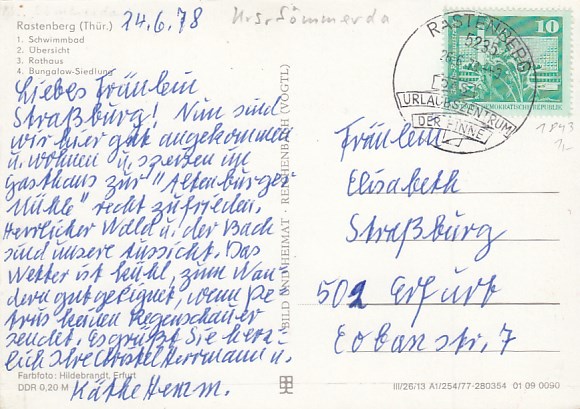 Rastenberg (Thür.)
24.6.78
Krs. Sömmerda
1. Schwimmbad
2. Übersicht
3. Rathaus
4. Bungalow-Siedlung
Liebes Fräulein
Straßburg! Nun sind
wir hier gut angekommen
u. wohnen u. speisen im
Gasthaus zur "Altenburger
Mühle" recht zufrieden.
Herrlicher Wald u. der Bach
sind unsere Aussicht. Das
Wetter ist kühl, zum Wan
dern gut geeignet, wenn Pe-
trus keinen Regenschauer
sendt. Es grüßt Sie herz-
lich Ihre Christel Herrmann u.
Käthe Hemm.
Farbfoto: Hildebrandt, Erfurt
DDR 0,20 M
BILD UND HEIMAT · REICHENBACH (VOGTL)
RASTENBERG
5235
URLAUBSZENTRUM
DER FINNE
10
DEMOKRATISCHE REPUBLIK
1843
Fräulein
Elisabeth
Straßburg
502 Erfurt
Eobanstr. 7
III/26/13 A1/254/77-280354 01 09 0090